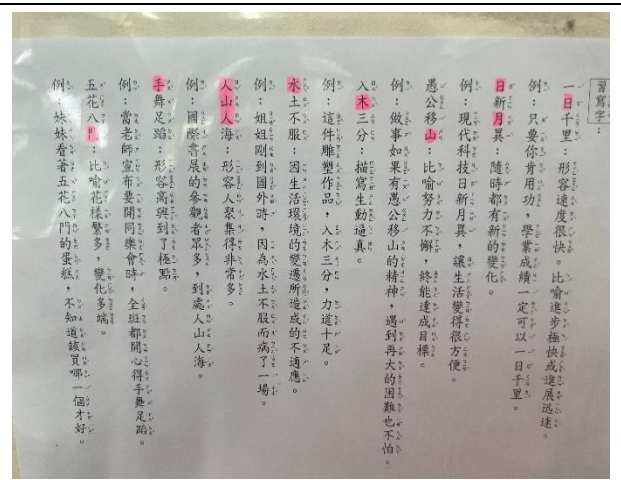 習寫字：
一日千里：形容速度很快。比喻進步極快或進展迅速。
例：只要你肯用功，學業成績一定可以一日千里。
日新月異：隨時都有新的變化。
例：現代科技日新月異，讓生活變得很方便。
愚公移山：比喻努力不懈，終能達成目標。
例：做事如果有愚公移山的精神，遇到再大的困難也不怕。
入木三分：描寫生動逼真。
例：這件雕塑作品，入木三分，力道十足。
水土不服：因生活環境的變遷所造成的不適應。
例：姐姐剛到國外時，因為水土不服而病了一場。
人山人海：形容人聚集得非常多。
例：國際書展的參觀者眾多，到處人山人海。
手舞足蹈：形容高興到了極點。
例：當老師宣布要開同樂會時，全班都開心得手舞足蹈。
五花八門：比喻花樣繁多，變化多端。
例：妹妹看著五花八門的蛋糕，不知道該買哪一個才好。